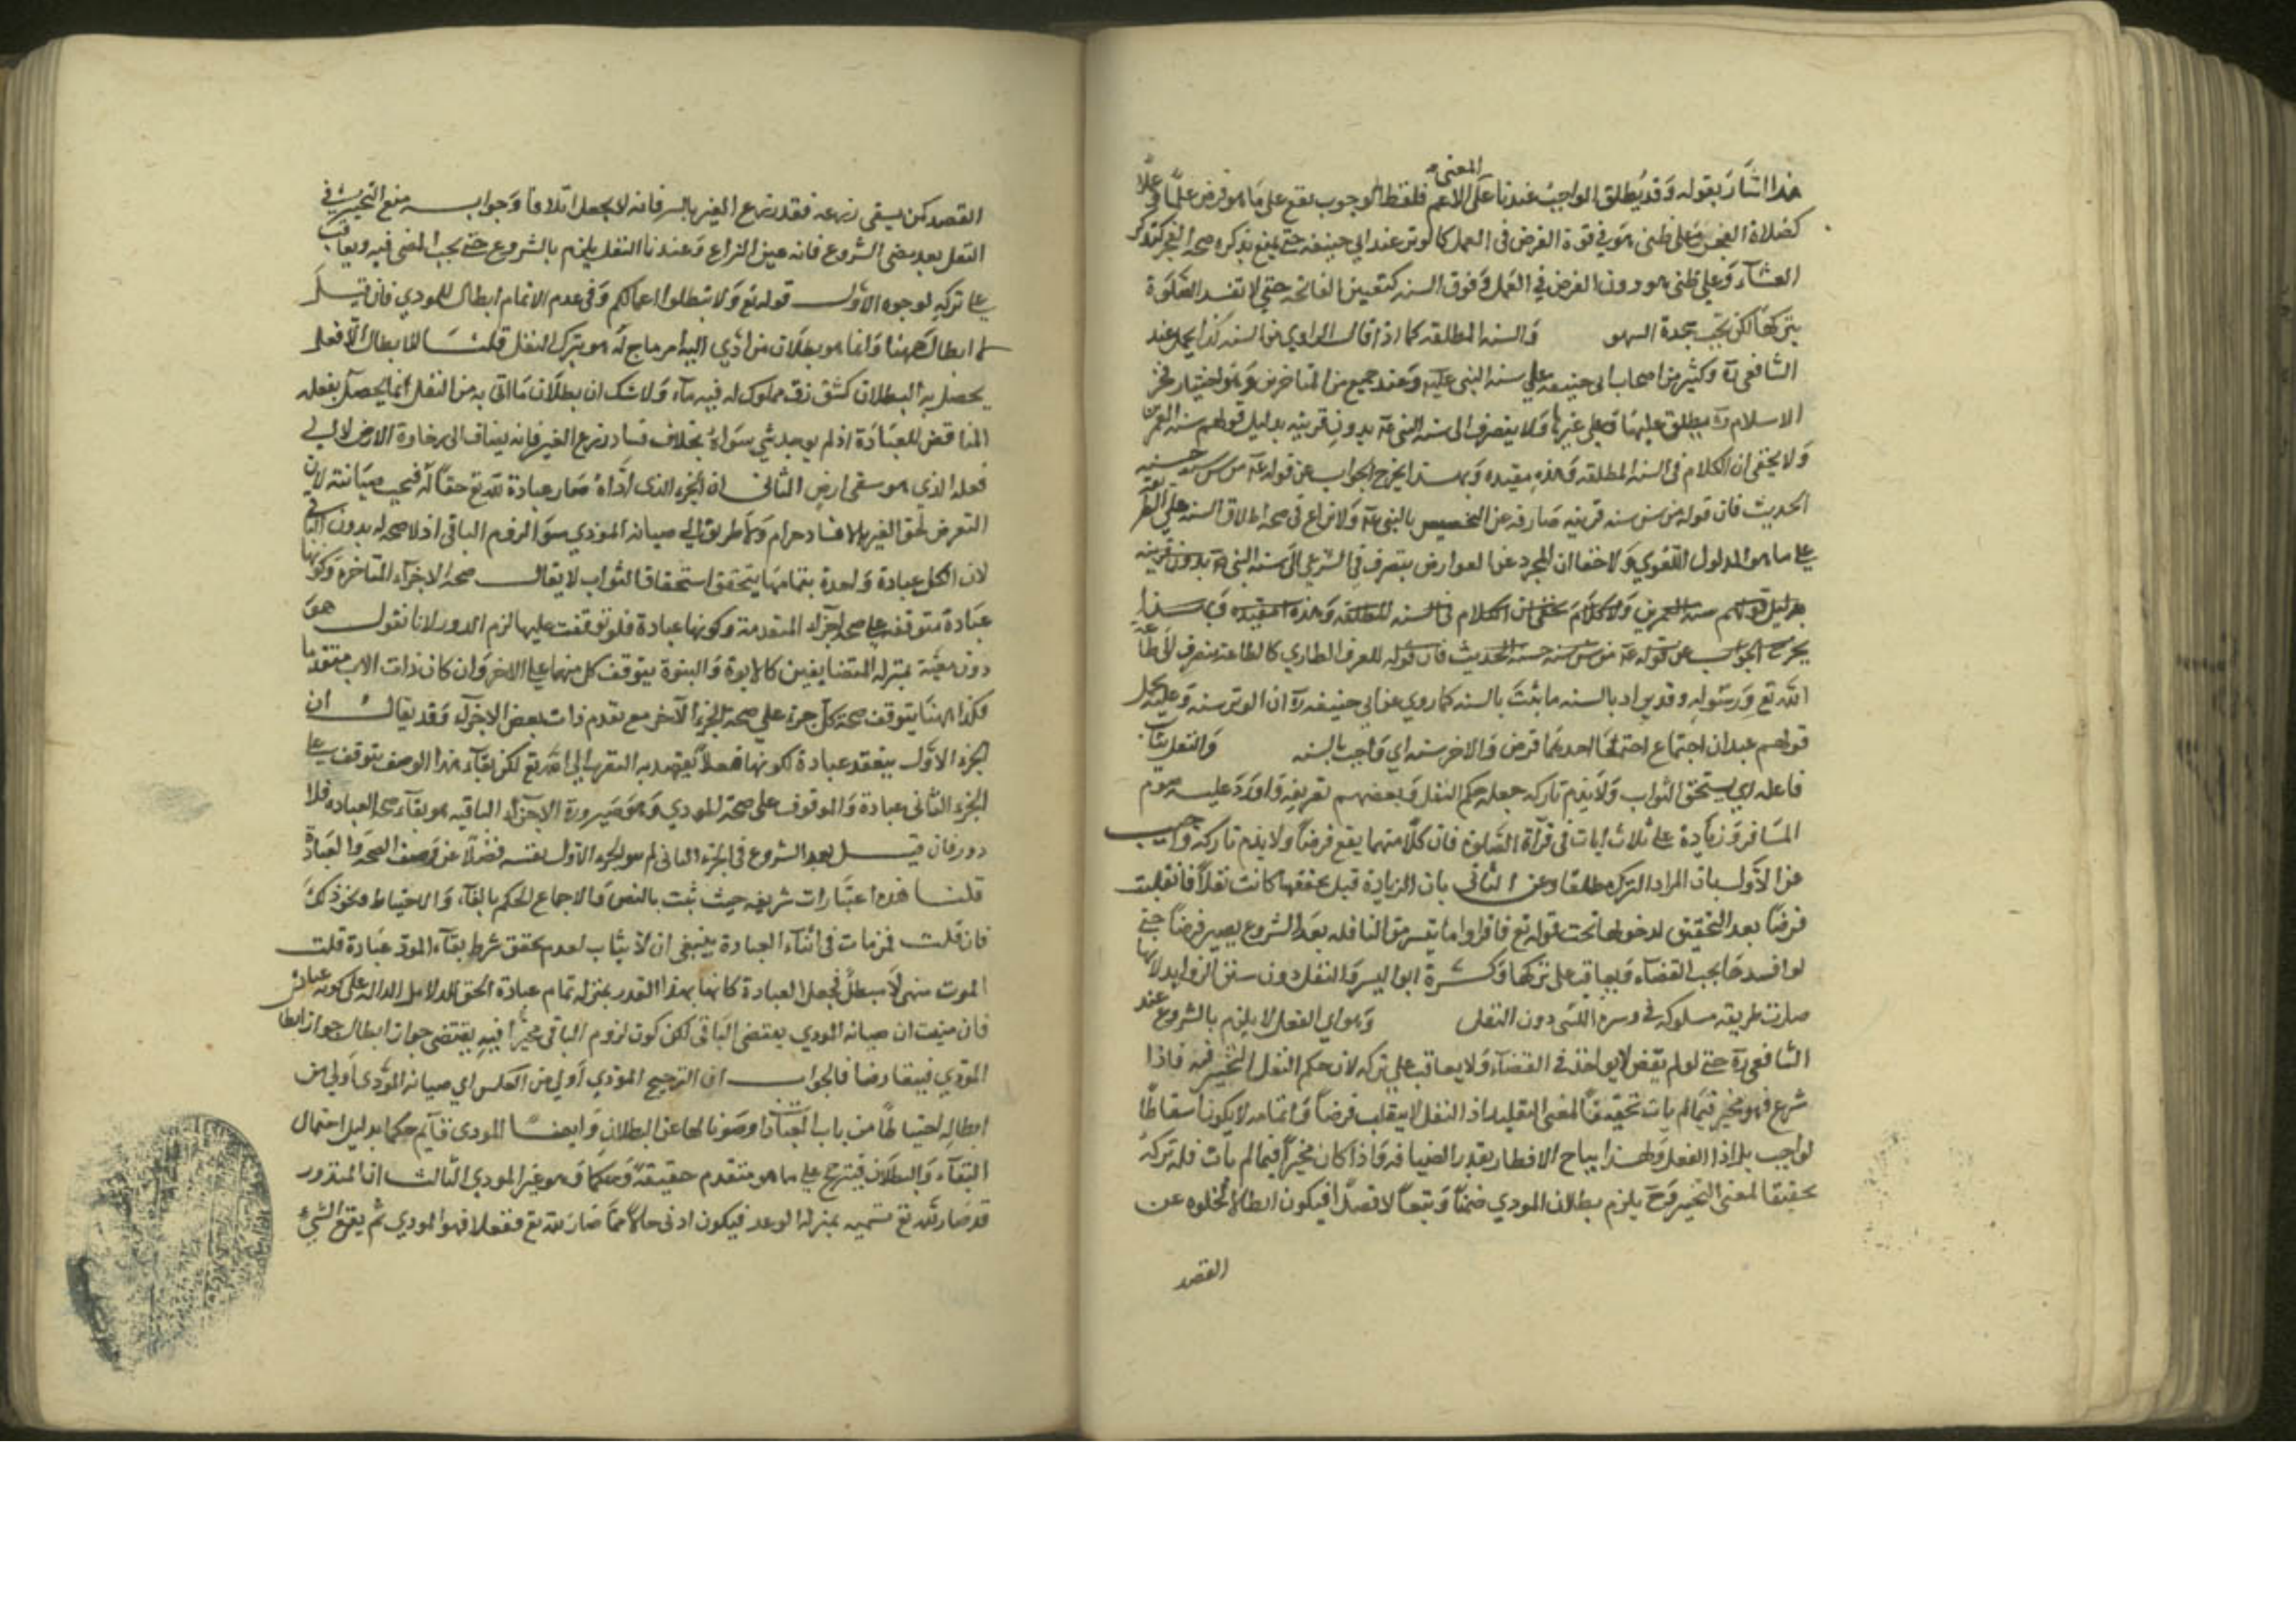 المعنى
هذا اشار بقوله وقد يطلق الواجب عندنا على الاعم فلفظ الوجوب يقع على ما هو فرض علما وعملا
كصلاة الفجر وعلى ظنى هو في قوة الفرض فى العمل كالوتر عند ابي حنيفه حتى يمنع تذكره صحه الفجر كتذكر
العشاء وعلي ظنى هو دون الفرض في العمل وفوق السنه كتعيين الفاتحه حتي لا تفسد الصلوة
بتركها لكن تجب سجدة السهو والسنه المطلقه كما اذا قال الراوي من السنه كذا يحمل عند
الشافعى ره وكثير من اصحاب ابى حنيفه علي سنه النبى عليه وعند جميع من المتاخرين وهو اختيار فخر
الاسلام ره يطلق عليها وعلى غيرها ولا ينصرف الى سنه النبى عه بدون قرينه بدليل قولهم سنه العمرين
ولا يخفى ان الكلام فى السنه المطلقه وهذه مقيده وبهذا يخرج الجواب عن قوله عه من سن سنه حسنه
الحديث فان قوله من سن سنه قرينه صارفه عن التخصيص بالنبى عه ولا نزاع فى صحه اطلاق السنه علي الطريقه
على ما هو المدلول اللغوي ولا خفا ان المجرد عن العوارض ينصرف في الشرع الى سنه النبى عه بدون قرينه
بدليل قولهم سنه العمرين ولا كلام يخفى ان الكلام فى السنه المطلقه وهذه مقيده وبهذا
يخرج الجواب عن قوله عه من سن سنه حسنه الحديث فان قوله للعرف الطاري كالطاعه ينصرف الى طاعه
الله تع ورسوله وقد يراد بالسنه ما ثبت بالسنه كما روي عن ابى حنيفه ره ان الوتر سنه وعليه يحمل
قولهم عيدان اجتماع احدهما فرض والاخر سنه اي واجب بالسنه والنفل يثاب
فاعله اي يستحق الثواب ولا يذم تاركه جعله حكم النفل وبعضهم تعريفه واورد عليه صوم
المسافر وزيادة على ثلاث ايات فى قرآة الصلوة فان كلا منهما يقع فرضا ولا يذم تاركه واجيب
عن الاول بان المراد الترك مطلقا وعن الثانى بان الزيادة قبل تحققها كانت نفلا فانقلبت
فرضا بعد التحقق لدخولها تحت قوله تع فاقراوا ما تيسر من النافله بعد الشروع يصير فرضا حتى
لو افسدها يجب القضاء ويعاقب على تركها ابو اليسر والنفل دون سنن الزوايد لانها
صارت طريقه مسلوكه فى دون النفل وهو اي الفعل لا يلزم بالشروع عند
الشافعى ره حتى لو لم يقض لا يواخذ فى القضاء ولا يعاقب على تركه لان حكم النفل التخيير فيه فاذا
شرع فهو مخير فيما لم يات تحقيقا لمعنى اذ النفل لا ينقلب فرضا واتمامه لا يكون اسقاطا
لواجب بل اداء النفل ولهذا يباح الافطار بعذر الضيافه واذا كان مخيرا فيما لم يات فله تركه
تحقيقا لمعنى التخيير وح يلزم بطلان المودي ضمنا وتبعا لا قصدا فيكون ابطالا لخلوه عن
القصد
القصد كمن يسقى زرعه ففسد زرع الغير بالنز فانه لا يجعل اتلافا وجوابه منع التخيير في
النفل بعد مضى الشروع فانه عين النزاع وعندنا النفل يلزم بالشروع حتى يجب المضى فيه ويعاقب
على تركه لوجوه الاول قوله تع ولا تبطلوا اعمالكم وفى عدم الاتمام ابطال للمودي فان قيل
لا ابطال ههنا وانما هو بطلان من ادي اليه امر مباح له هو ترك النفل قلنا لا ابطال الا فعل
يحصل به البطلان كشق زق مملوك له فيه ماء ولا شك ان بطلان ما اتى به من النفل انما يحصل بفعله
المناقض للعبادة اذ لم يوجد شي سواه بخلاف فساد زرع الغير فانه يضاف الى رخاوة الارض لا الى
فعله الذي هو سقى ارض الثانى ان الجزء الذى اداه صار عبادة لله تع حقا له فيجب صيانته لان
التعرض لحق الغير بالافساد حرام ولا طريق الي صيانه المودي سوا لزوم الباقى اذ لا صحه له بدون الباقى
لان الكل عبادة واحدة بتمامها يتحقق استحقاق الثواب لا يقال صحه الاجزاء المتاخرة وكونها
عبادة متوقفه على صحه اجزاء المتقدمة وكونها عبادة فلو توقفت عليها لزم الدور لانا نقول هو
دور معية بمنزله المتضايفين كالابوة والبنوة يتوقف كل منهما علي الاخر وان كان ذات الاب متقدما
فكذا ههنا يتوقف صحة كل جزء علي صحة الجزء الآخر مع تقدم ذات بعض الاجزاء وقد يقال ان
الجزء الاول ينعقد عبادة لكونها فعلا يقصد به التقرب الي الله تع لكن بقاء هذا الوصف يتوقف على
الجزء الثانى عبادة والموقوف على صحة المودي وهو صيرورة الاجزاء الباقيه هو بقاء صحه العباده فلا
دور فان قيل بعد الشروع فى الجزء الثانى لم الجزء الاول نفسه فضلا عن وصف الصحه والعبادة
قلنا هذه اعتبارات شرعيه حيث ثبت بالنص والاجماع الحكم بالبقاء والاحتياط ونحو ذلك
فان قلت فمن مات فى اثناء العبادة ينبغى ان لا يثاب لعدم تحقق شرط بقاء المودى عبادة قلت
الموت منهى لا مبطل فجعل العبادة كانها بهذا القدر بمنزله تمام عبادة الحق الدلايل الداله على كونه عبادة
فان منعت ان صيانه المودي يقتضى الباقى لكن كون لزوم الباقى مخيرا فيه يقتضى جواز ابطال جواز ابطال
المودي فيتعارضا فالجواب ان الترجيح المودي أولى من العكس اي صيانه المودى اولى من
ابطاله احتياطا من باب العبادات وصونا لها عن البطلان وايضا المودى قائم حكما بدليل احتمال
البقاء والبطلان فيترجح علي ما هو منعدم حقيقة وحكما وهو غير المودي الثالث ان المنذور
قد صار لله تع تسميه بمنزله الوعد فيكون ادنى حالا مما صار لله تع فعلا فهو المودي ثم يقع الشئ